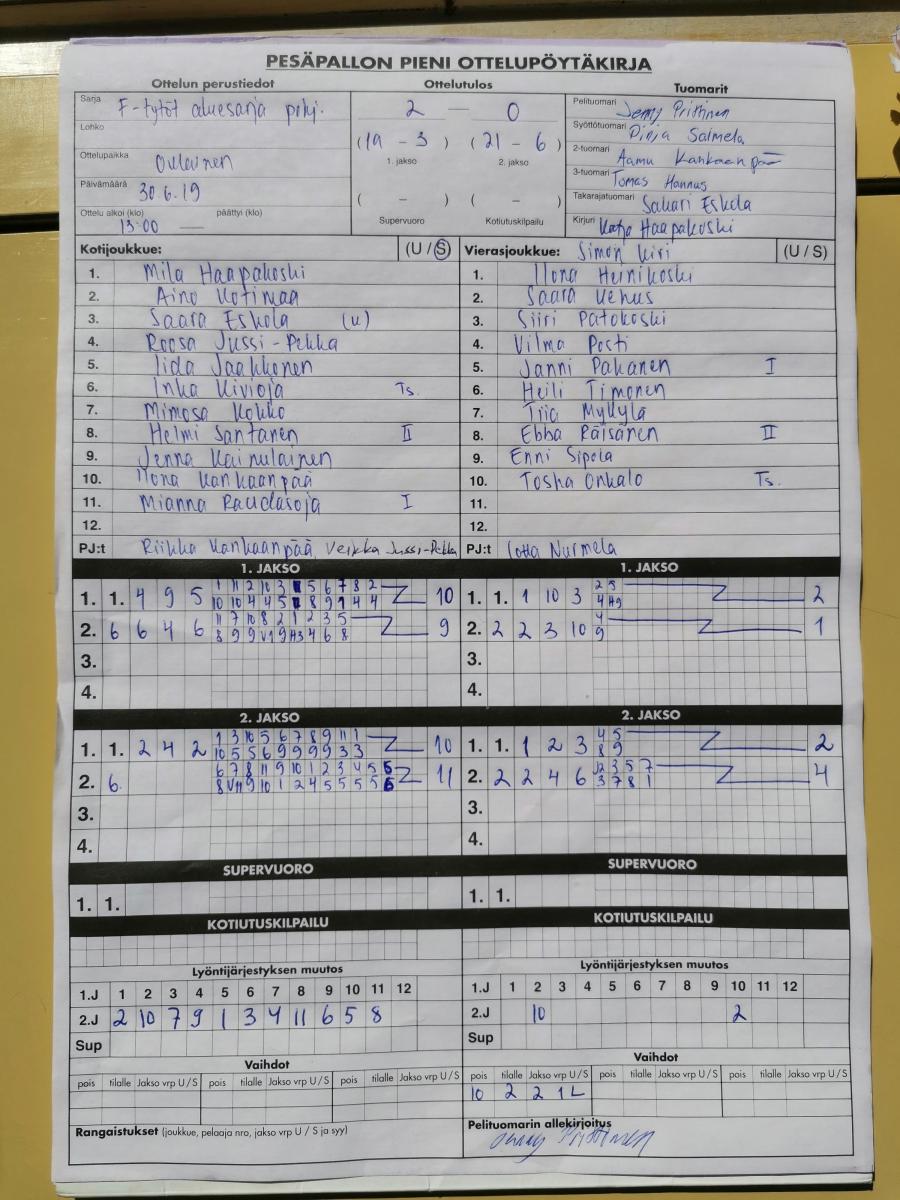 PESÄPALLON PIENI OTTELUPÖYTÄKIRJA
Ottelun perustiedot
Sarja F-tytöt aluesarja pohj.
Lohko
Ottelupaikka Oulainen
Päivämäärä 30.6.19
Ottelu alkoi (klo) päättyi (klo)
13.00 —
Ottelutulos
2 — 0
(19 - 3) (21 - 6)
1. jakso 2. jakso
( - ) ( - )
Supervuoro Kotiutuskilpailu
Tuomarit
Pelituomari Jenny Prittinen
Syöttötuomari Pinja Salmela
2-tuomari Aamu Kankaanpää
3-tuomari Tomas Hannus
Takarajatuomari Sakari Eskola
Kirjuri Katja Haapakoski
Kotijoukkue: (U / S)
1. Mila Haapakoski
2. Aino Kotimaa
3. Saara Eskola (u)
4. Roosa Jussi-Pekka
5. Iida Jaakkonen
6. Inka Kivioja Ts.
7. Mimosa Kokko
8. Helmi Santanen II
9. Jenna Kainulainen
10. Ilona Kankaanpää
11. Mianna Raudasoja I
12.
PJ:t Riikka Kankaanpää, Veikka Jussi-Pekka
Vierasjoukkue: Simon Kiri (U / S)
1. Ilona Heinikoski
2. Saara Kehus
3. Siiri Patokoski
4. Vilma Posti
5. Janni Pakanen I
6. Heili Timonen
7. Tiia Myllylä
8. Ebba Räisänen II
9. Enni Sipola
10. Tosha Onkalo Ts.
11.
12.
PJ:t Lotta Nurmela
1. JAKSO
1. 1. 4 9 5 10
2. 6 6 4 6 9
3.
4.
1. JAKSO
1. 1. 1 10 3 2
2. 2 2 3 10 1
3.
4.
2. JAKSO
1. 1. 2 4 2 10
2. 6. 11
3.
4.
2. JAKSO
1. 1. 1 2 3 2
2. 2 2 4 6 4
3.
4.
SUPERVUORO
1. 1.
SUPERVUORO
1. 1.
KOTIUTUSKILPAILU
KOTIUTUSKILPAILU
Lyöntijärjestyksen muutos
1.J 1 2 3 4 5 6 7 8 9 10 11 12
2.J 2 10 7 9 1 3 4 11 6 5 8
Sup
Lyöntijärjestyksen muutos
1.J 1 2 3 4 5 6 7 8 9 10 11 12
2.J 10 2
Sup
Vaihdot
pois tilalle Jakso vrp U / S pois tilalle Jakso vrp U / S pois tilalle Jakso vrp U / S
Vaihdot
pois tilalle Jakso vrp U / S pois tilalle Jakso vrp U / S pois tilalle Jakso vrp U / S
10 2 2 1L
Rangaistukset (joukkue, pelaaja nro, jakso vrp U / S ja syy)
Pelituomarin allekirjoitus